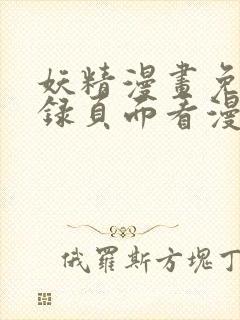 妖精漫畫免
錄頁面看漫
俄羅斯方塊丁